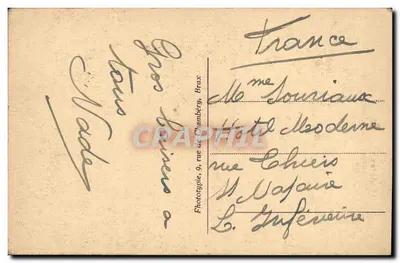 Gros baisers a
tous
Nade
Phototypie, 9, rue de Chambéry, Brux
CARTORUM
France
Mme Souriaux
Hotel Moderne
rue Thiers
St Nazaire
L. Inférieure